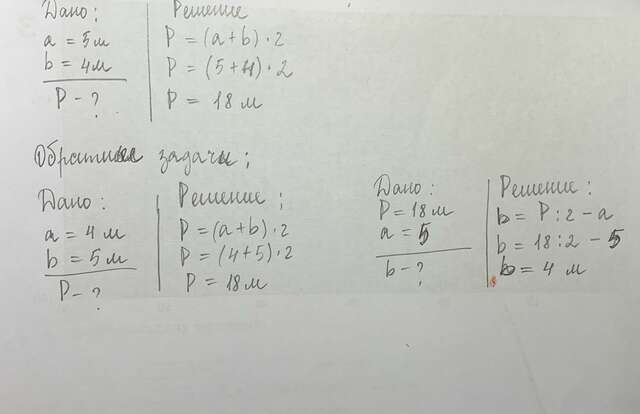 Дано:
a = 5 м
b = 4 м
P - ?
Решение
P = (a+b)·2
P = (5+4)·2
P = 18 м
Обратные задачи;
Дано:
a = 4 м
b = 5 м
P - ?
Решение;
P = (a+b)·2
P = (4+5)·2
P = 18 м
Дано:
P = 18 м
a = 5
b - ?
Решение:
b = P:2 - a
b = 18:2 - 5
b = 4 м